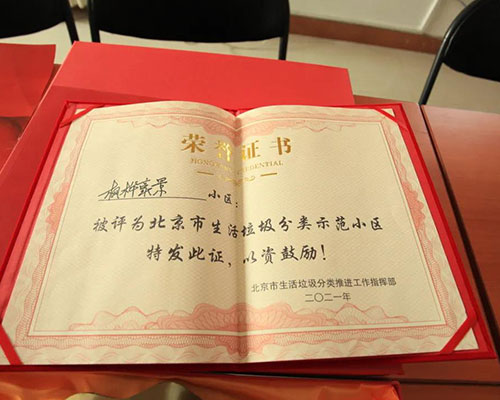 荣誉证书
枫桦豪景 小区:
被评为北京市生活垃圾分类示范小区
特发此证，以资鼓励!
北京市生活垃圾分类推进工作指挥部
二〇二一年